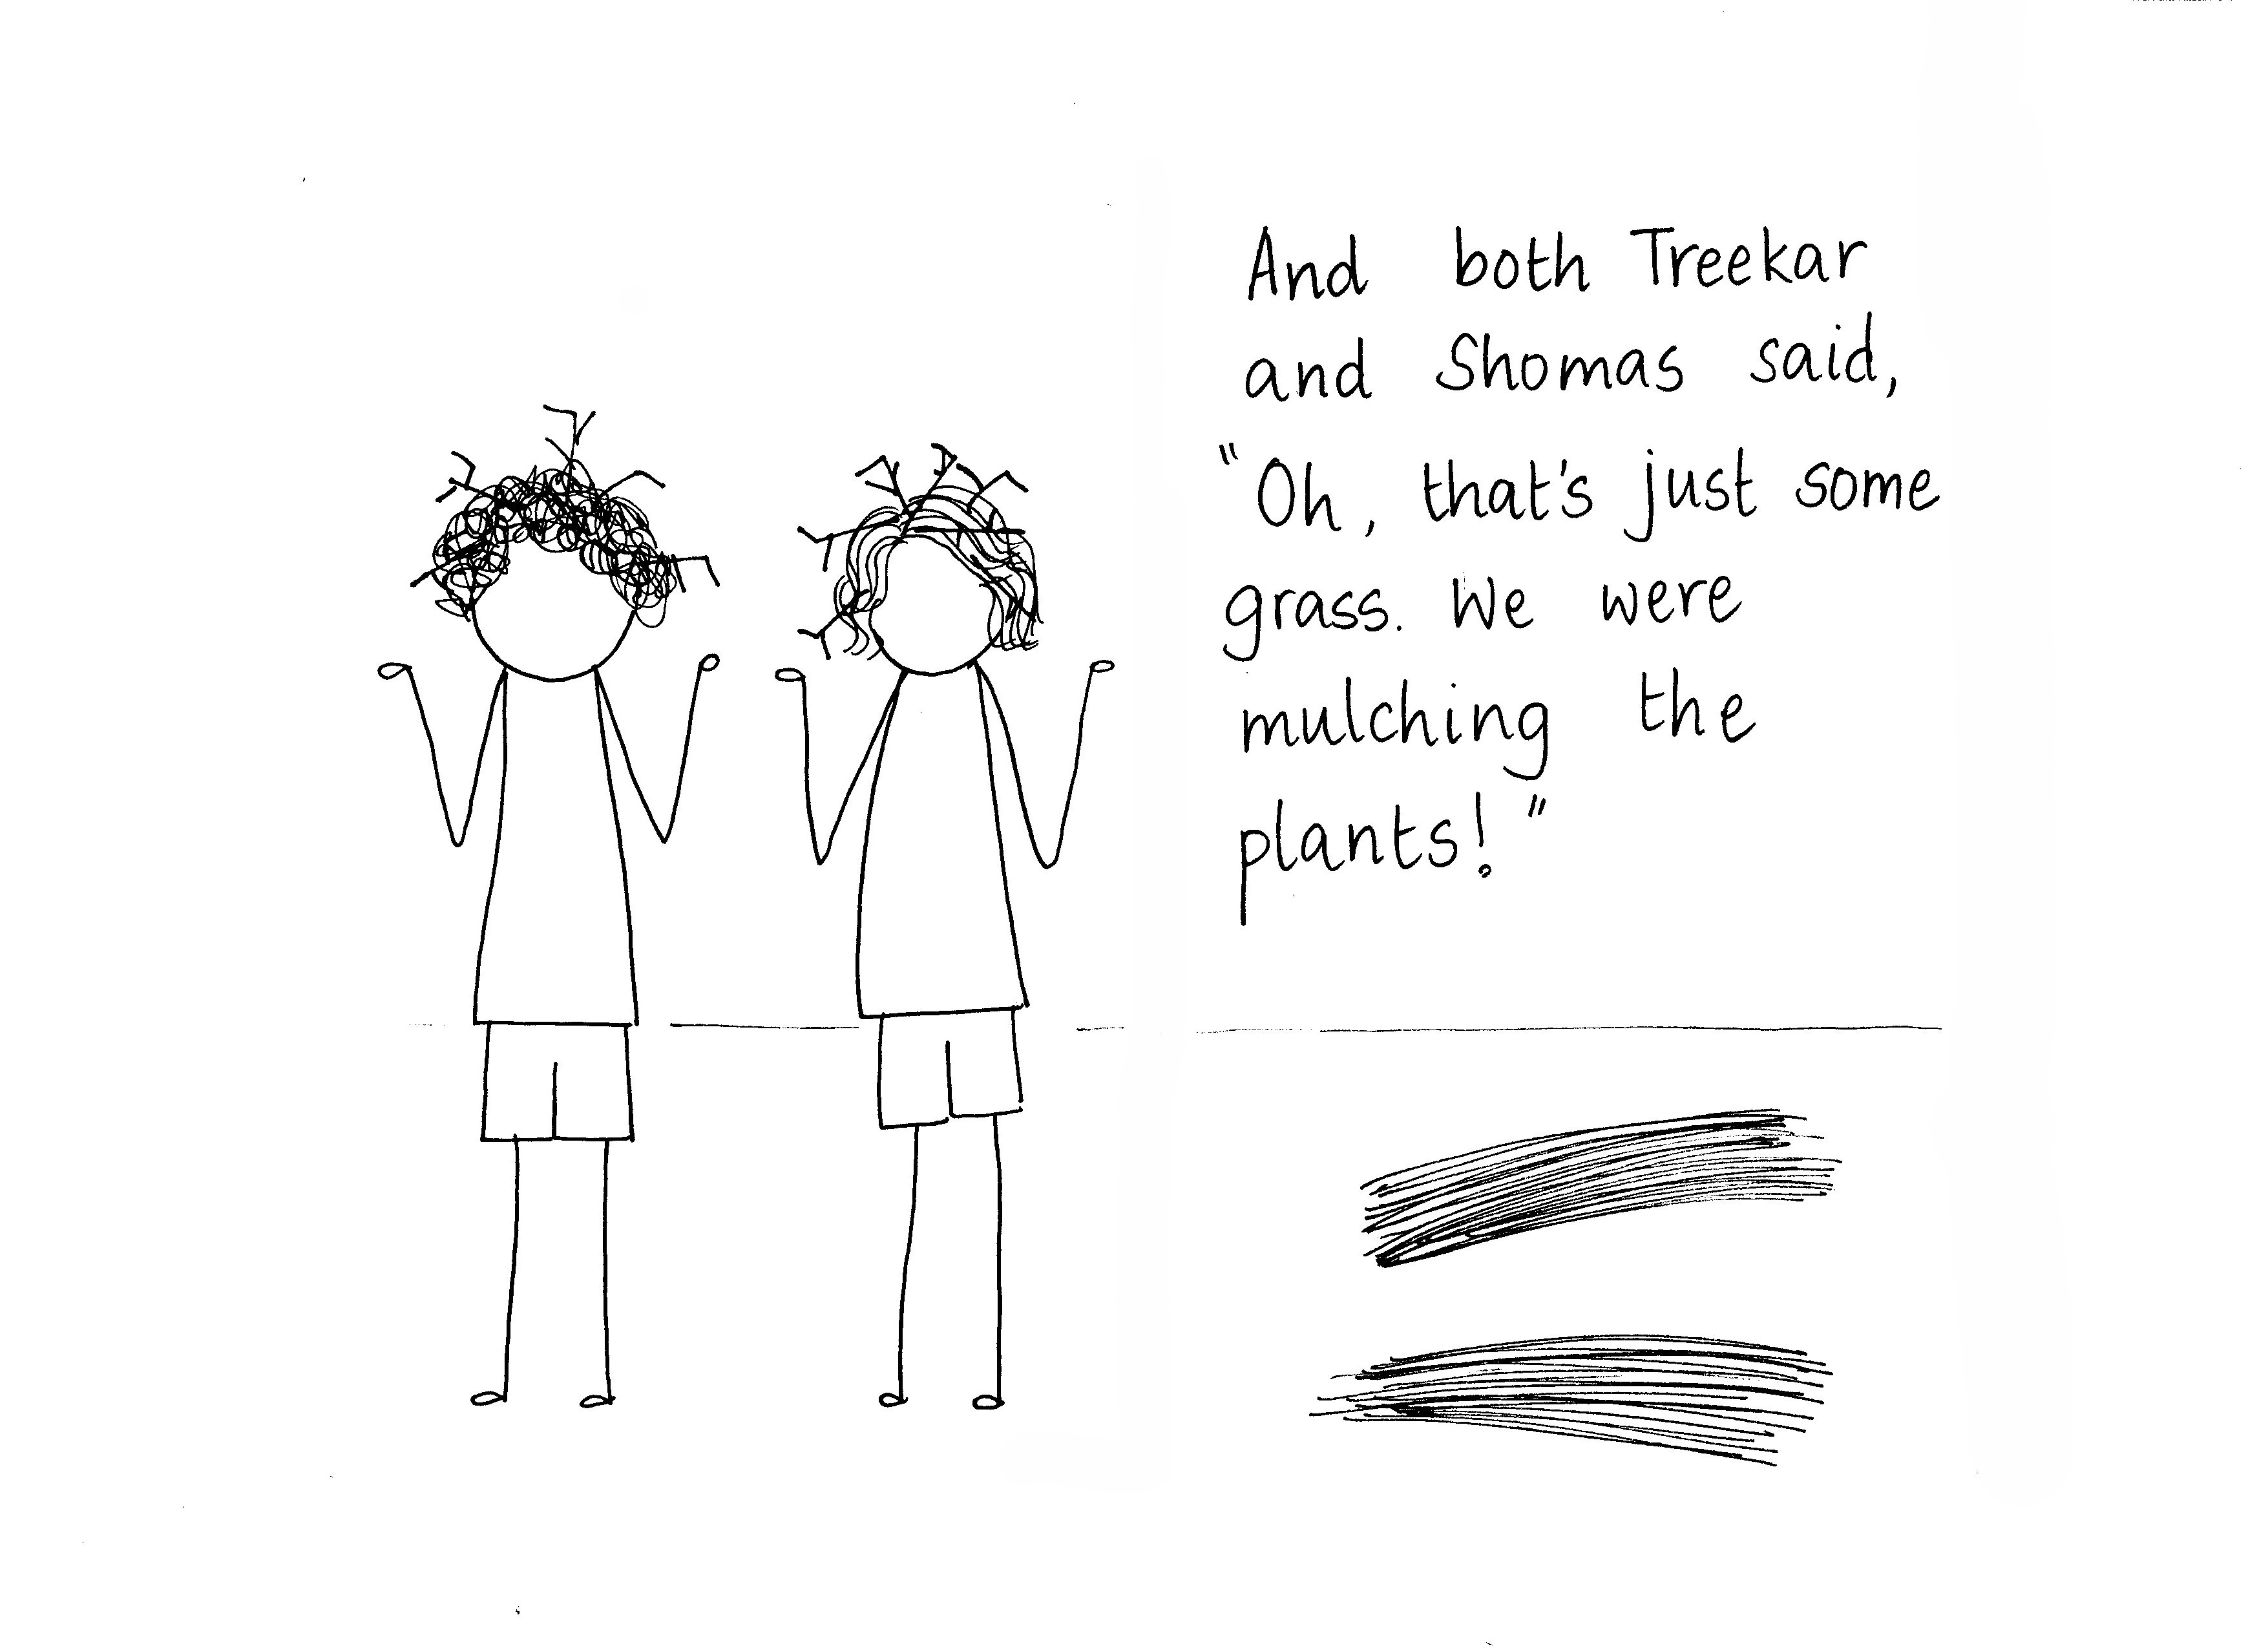 And both Treekar
and Shomas said,
"Oh, that's just some
grass. We were
mulching the
plants!"